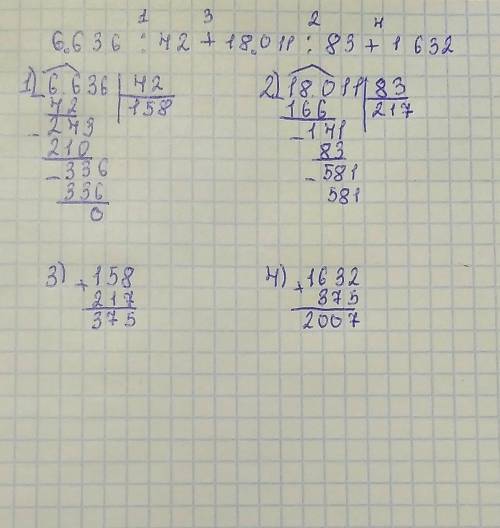 1 3 2 4
6.636 : 42 + 18.011 : 83 + 1 632
1) 6.636 | 42
42 158
- 243
210
- 336
336
0
2) 18.011 | 83
166 217
- 141
83
- 581
581
3) + 158
217
375
4) + 1632
375
2007